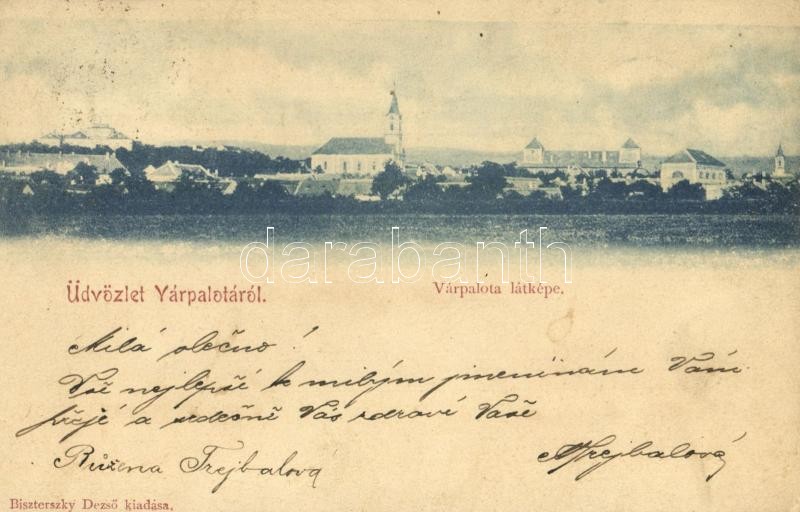 darabanth
Üdvözlet Várpalotáról.
Várpalota látképe.
Milá slečno!
Vše nejlepší k milým jmeninám Vám
přeje a srdečně Vás zdraví Vaše
Růžena Trejbalová
Trejbalová
Biszterszky Dezső kiadása.